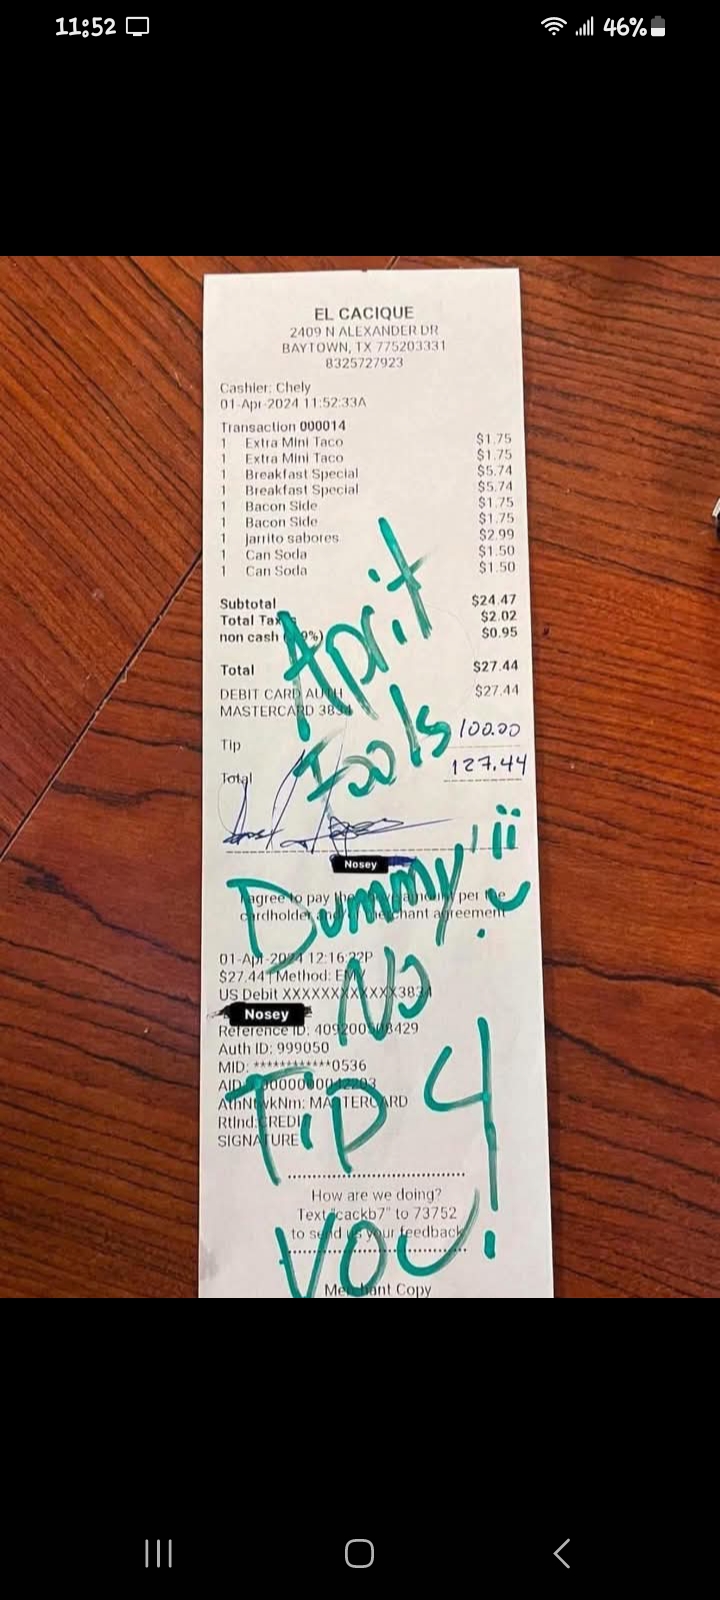 11:52 46%
EL CACIQUE
2409 N ALEXANDER DR
BAYTOWN, TX 775203331
8325727923
Cashier: Chely
01-Apr-2024 11:52:33A
Transaction 000014
1 Extra Mini Taco $1.75
1 Extra Mini Taco $1.75
1 Breakfast Special $5.74
1 Breakfast Special $5.74
1 Bacon Side $1.75
1 Bacon Side $1.75
1 jarrito sabores $2.99
1 Can Soda $1.50
1 Can Soda $1.50
Subtotal $24.47
Total Tax $2.02
non cash $0.95
Total $27.44
DEBIT CARD AUTH $27.44
MASTERCARD 3834
Tip 100.00
Total 127.44
Nosey
I agree to pay the above amount per the
cardholder and/or merchant agreement
01-Apr-2024 12:16:22P
$27.44 | Method: EMV
US Debit XXXXXXXXXXXX3834
Nosey
Reference ID: 8429
Auth ID: 999050
MID: ************0536
AID:
AthNtwkNm: MASTERCARD
RtInd:CREDIT
SIGNATURE
How are we doing?
Text "cackb7" to 73752
to send us your feedback
Merchant Copy
April
Fools
Dummy!!
No
Tip 4
You!